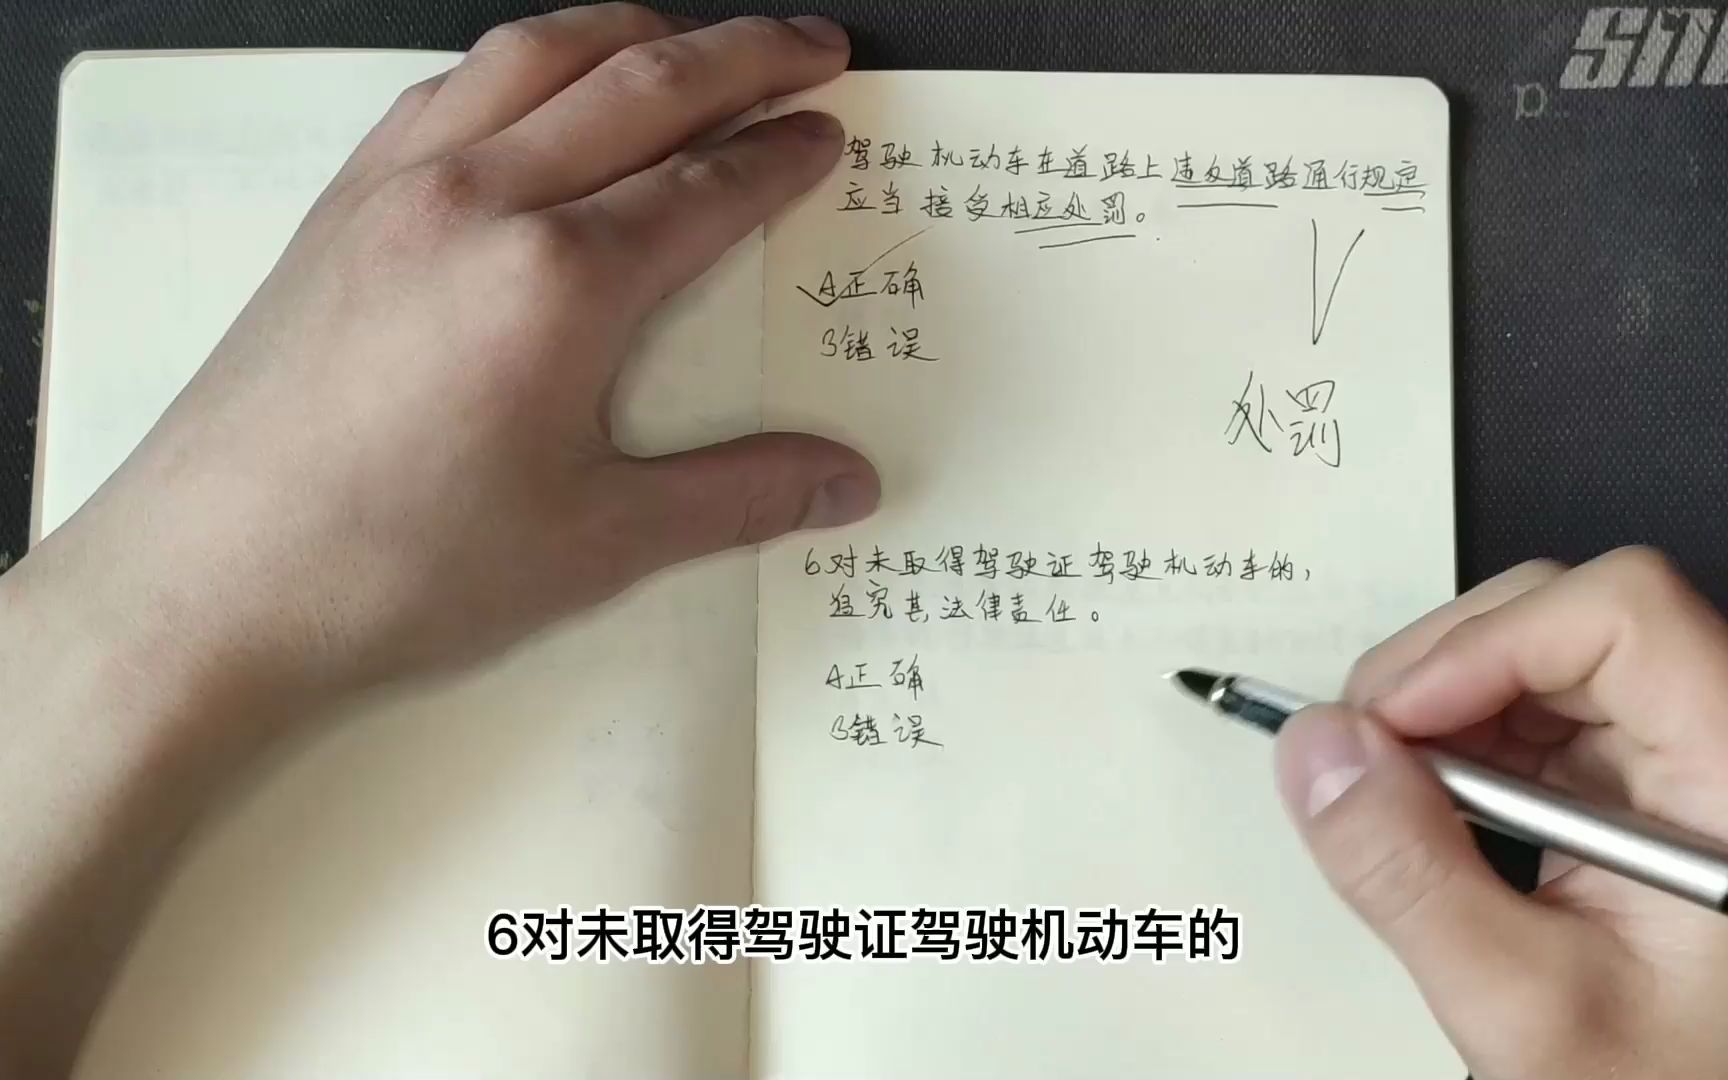 驾驶机动车在道路上违反道路通行规定
应当接受相应处罚。
A正确
B错误
处罚
6对未取得驾驶证驾驶机动车的,
追究其法律责任。
A正确
B错误
6对未取得驾驶证驾驶机动车的